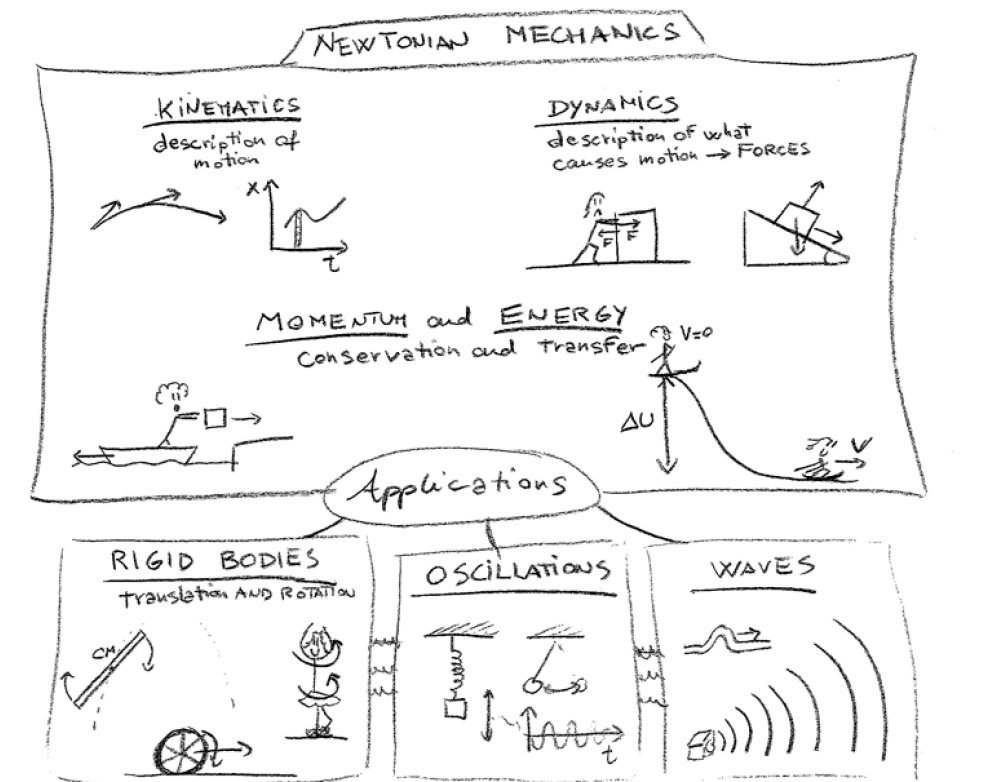 NEWTONIAN MECHANICS
KINEMATICS
description of
motion
X
t
DYNAMICS
description of what
causes motion → FORCES
F F
MOMENTUM and ENERGY
conservation and transfer
V=0
ΔU
V
Applications
RIGID BODIES
translation AND ROTATION
CM
OSCILLATIONS
t
WAVES